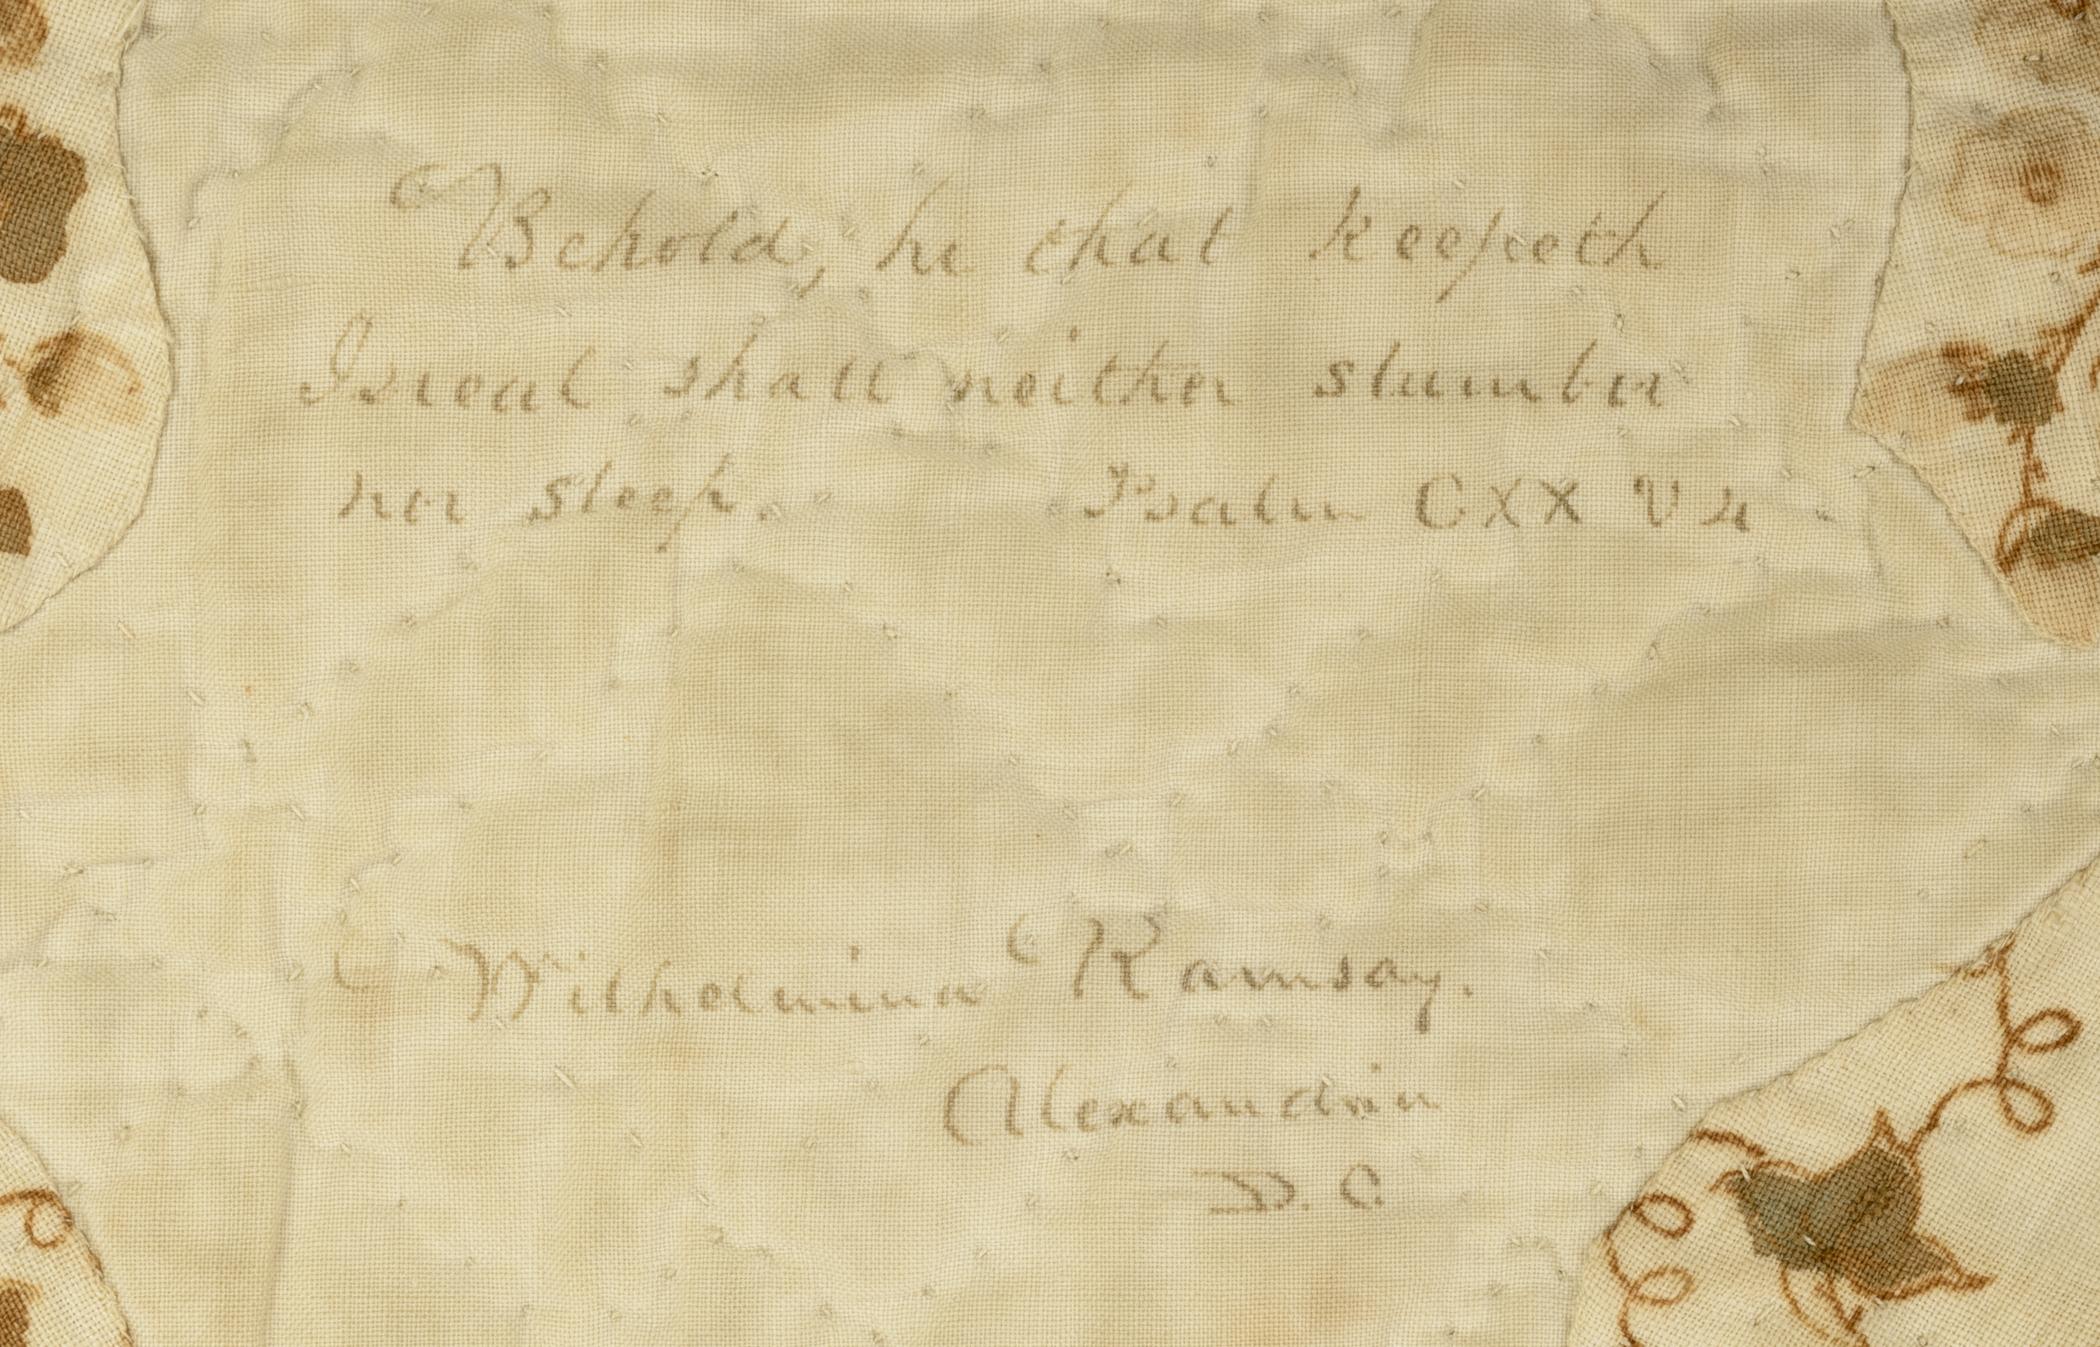 Behold, he that keepeth
Isreal shall neither slumber
nor sleep. Psalm CXX V 4
Wilhelmina Ramsay.
Alexandria
D. C.